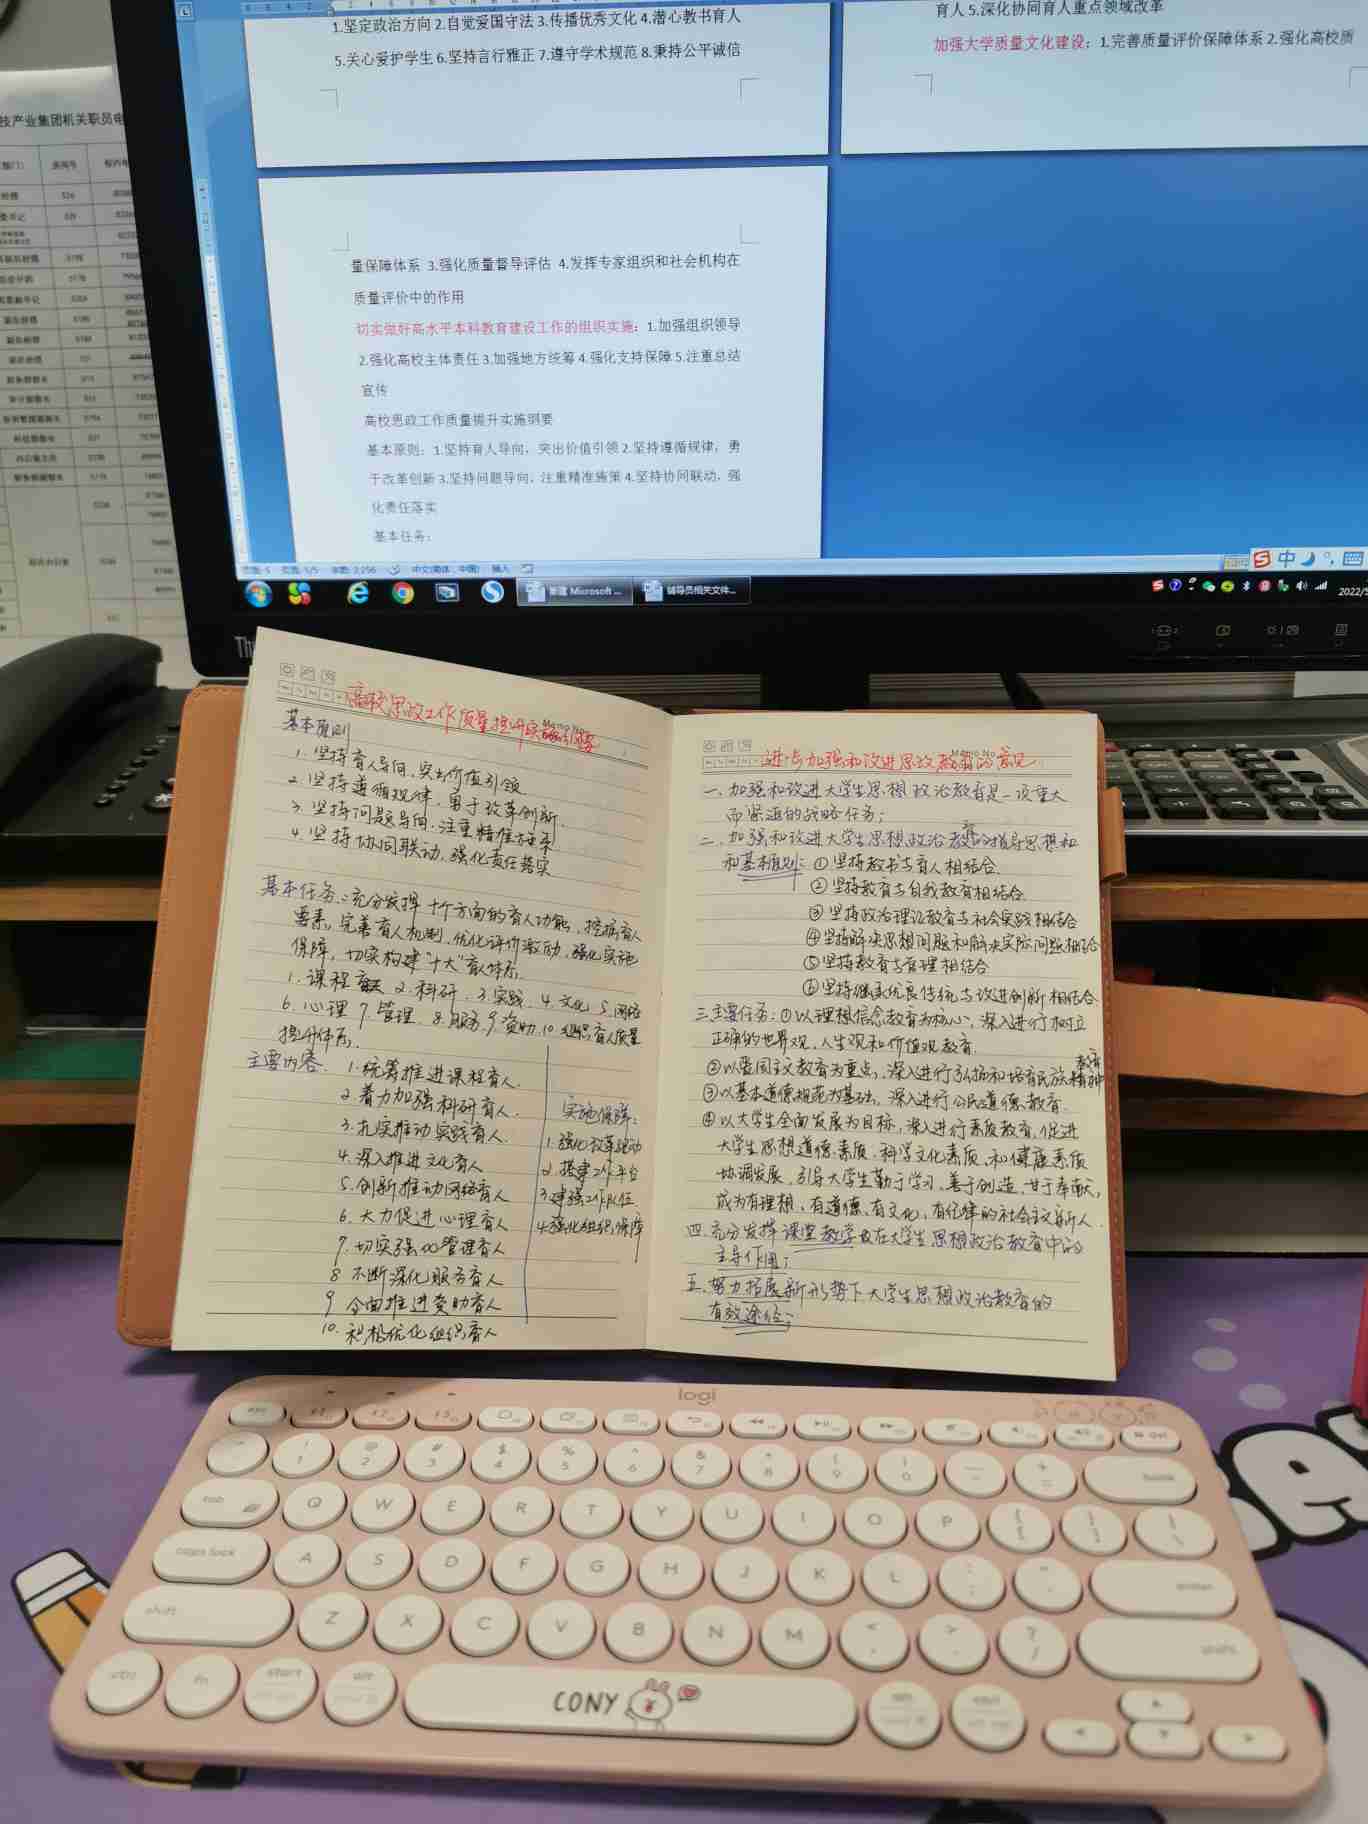 1.坚定政治方向 2.自觉爱国守法 3.传播优秀文化 4.潜心教书育人
5.关心爱护学生 6.坚持言行雅正 7.遵守学术规范 8.秉持公平诚信
育人 5.深化协同育人重点领域改革
加强大学质量文化建设：1.完善质量评价保障体系 2.强化高校质
量保障体系 3.强化质量督导评估 4.发挥专家组织和社会机构在
质量评价中的作用
切实做好高水平本科教育建设工作的组织实施：1.加强组织领导
2.强化高校主体责任 3.加强地方统筹 4.强化支持保障 5.注重总结
宣传
高校思政工作质量提升实施纲要
基本原则：1.坚持育人导向，突出价值引领 2.坚持遵循规律，勇
于改革创新 3.坚持问题导向，注重精准施策 4.坚持协同联动，强
化责任落实
基本任务：
页面: 5 页码: 5/5 字数: 2,256 中文(简体，中国) 插入
新建 Microsoft ...
辅导员相关文件...
中
2022/5
技产业集团机关职员电
房间号
高校思政工作质量提升实施纲要
基本原则
1. 坚持育人导向，突出价值引领
2. 坚持遵循规律，勇于改革创新.
3. 坚持问题导向，注重精准施策
4. 坚持协同联动，强化责任落实
基本任务：充分发挥十个方面的育人功能，挖掘育人
要素，完善育人机制，优化评价激励，强化实施
保障，切实构建“十大”育人体系.
1. 课程 2. 科研. 3. 实践. 4. 文化 5. 网络
6. 心理 7. 管理. 8. 服务. 9. 资助. 10. 组织育人质量
提升体系.
主要内容. 1. 统筹推进课程育人.
2. 着力加强科研育人.
3. 扎实推动实践育人.
4. 深入推进文化育人
5. 创新推动网络育人
6. 大力促进心理育人
7. 切实强化管理育人
8 不断深化服务育人
9 全面推进资助育人
10. 积极优化组织育人
实施保障：
1. 强化改革驱动
2. 搭建工作平台
3. 建强工作队伍
4. 强化组织保障
进一步加强和改进思政教育的意见
一. 加强和改进大学生思想政治教育是一项重大
而紧迫的战略任务；
二. 加强和改进大学生思想政治教育的指导思想和
和基本原则：①坚持教书与育人相结合.
②坚持教育与自我教育相结合.
③坚持政治理论教育与社会实践相结合
④坚持解决思想问题和解决实际问题相结合
⑤坚持教育与管理相结合
⑥坚持继承优良传统与改进创新相结合
三.主要任务：①以理想信念教育为核心，深入进行树立
正确的世界观、人生观和价值观教育.
②以爱国主义教育为重点，深入进行弘扬和培育民族精神教育
③以基本道德规范为基础，深入进行公民道德教育.
④以大学生全面发展为目标，深入进行素质教育，促进
大学生思想道德素质、科学文化素质、和健康素质
协调发展，引导大学生勤于学习、善于创造、甘于奉献，
成为有理想、有道德、有文化、有纪律的社会主义新人.
四. 充分发挥课堂教学在大学生思想政治教育中的
主导作用；
五. 努力拓展新形势下大学生思想政治教育的
有效途径；
logi
esc
! 1 @ 2 # 3 $ 4 % 5 ^ 6 & 7 * 8 ( 9 ) 0
tab Q W E R T Y U I O P
caps lock A S D F G H J K L enter
shift Z X C V B N M shift
ctrl fn start alt CONY